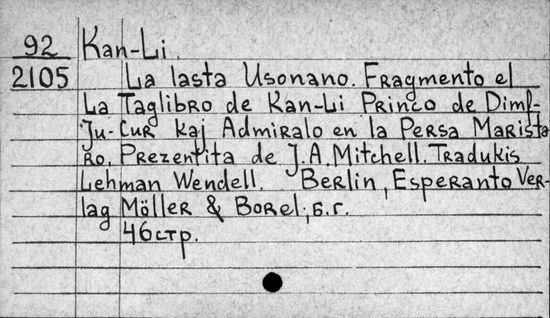 92
2105
Kan-Li
La lasta Usonano. Fragmento el
La Taglibro de Kan-Li Princo de Dimf-
Ju-Cur kaj Admiralo en la Persa Marista-
ro, Prezentita de J.A. Mitchell. Tradukis
Lehman Wendell. Berlin, Esperanto Ver-
lag Möller & Borel, б.г.
46стр.